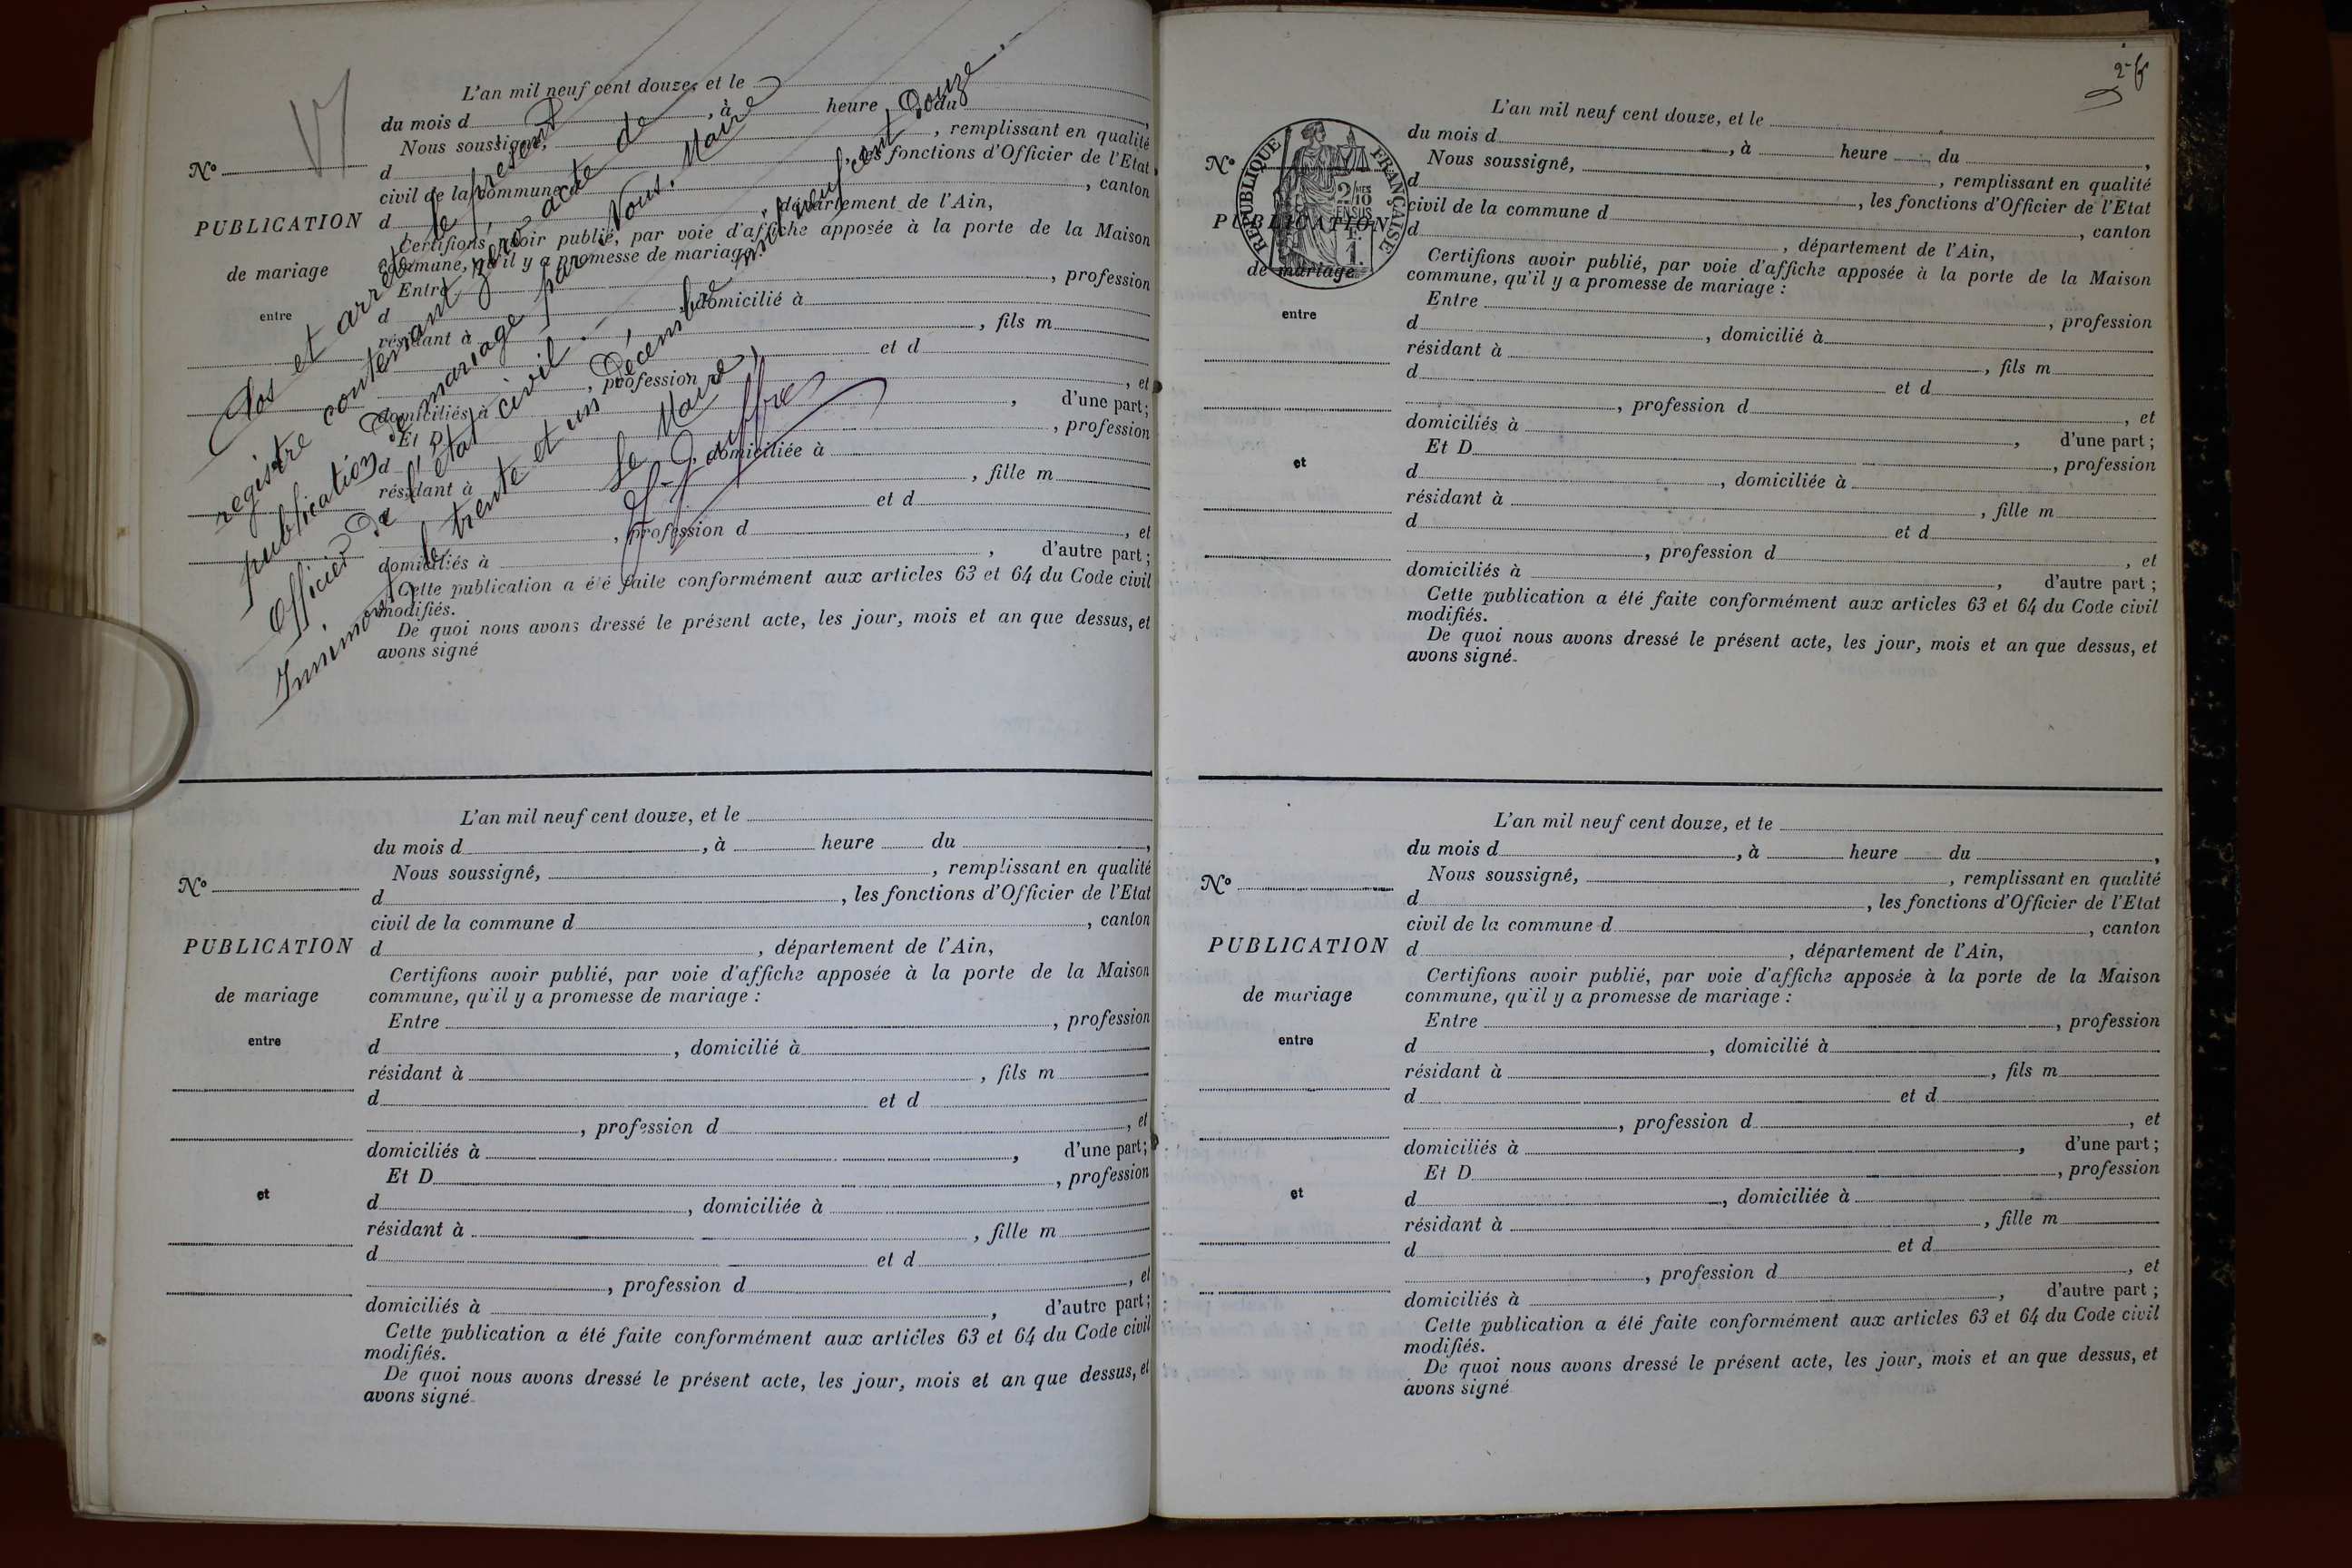 L'an mil neuf cent douze, et le
du mois d , à heure du ,
Nous soussigné, , remplissant en qualité
d , les fonctions d'Officier de l'Etat
civil de la commune d , canton
d , département de l'Ain,
Certifions avoir publié, par voie d'affiche apposée à la porte de la Maison
commune, qu'il y a promesse de mariage :
Entre , profession
d , domicilié à
résidant à , fils m
d et d
, profession d , et
domiciliés à , d'une part ;
Et D , profession
d , domiciliée à
résidant à , fille m
d et d
, profession d , et
domiciliés à , d'autre part ;
Cette publication a été faite conformément aux articles 63 et 64 du Code civil
modifiés.
De quoi nous avons dressé le présent acte, les jour, mois et an que dessus, et
avons signé
N°
PUBLICATION
de mariage
entre
Clos et arrêté le présent
registre contenant zéro acte de
publication de mariage par Nous, Maire
Officier de l'état civil.
Innimont, le trente et un Décembre mil neuf cent douze
Le Maire,
L'an mil neuf cent douze, et le
du mois d , à heure du ,
Nous soussigné, , remplissant en qualité
d , les fonctions d'Officier de l'Etat
civil de la commune d , canton
d , département de l'Ain,
Certifions avoir publié, par voie d'affiche apposée à la porte de la Maison
commune, qu'il y a promesse de mariage :
Entre , profession
d , domicilié à
résidant à , fils m
d et d
, profession d , et
domiciliés à , d'une part ;
Et D , profession
d , domiciliée à
résidant à , fille m
d et d
, profession d , et
domiciliés à , d'autre part ;
Cette publication a été faite conformément aux articles 63 et 64 du Code civil
modifiés.
De quoi nous avons dressé le présent acte, les jour, mois et an que dessus, et
avons signé
N°
PUBLICATION
de mariage
entre
et
L'an mil neuf cent douze, et le
du mois d , à heure du ,
Nous soussigné, , remplissant en qualité
d , les fonctions d'Officier de l'Etat
civil de la commune d , canton
d , département de l'Ain,
Certifions avoir publié, par voie d'affiche apposée à la porte de la Maison
commune, qu'il y a promesse de mariage :
Entre , profession
d , domicilié à
résidant à , fils m
d et d
, profession d , et
domiciliés à , d'une part ;
Et D , profession
d , domiciliée à
résidant à , fille m
d et d
, profession d , et
domiciliés à , d'autre part ;
Cette publication a été faite conformément aux articles 63 et 64 du Code civil
modifiés.
De quoi nous avons dressé le présent acte, les jour, mois et an que dessus, et
avons signé
N°
PUBLICATION
de mariage
entre
et
RÉPUBLIQUE FRANÇAISE
2/10
EN SUS
1 F.
L'an mil neuf cent douze, et te
du mois d , à heure du ,
Nous soussigné, , remplissant en qualité
d , les fonctions d'Officier de l'Etat
civil de la commune d , canton
d , département de l'Ain,
Certifions avoir publié, par voie d'affiche apposée à la porte de la Maison
commune, qu'il y a promesse de mariage :
Entre , profession
d , domicilié à
résidant à , fils m
d et d
, profession d , et
domiciliés à , d'une part ;
Et D , profession
d , domiciliée à
résidant à , fille m
d et d
, profession d , et
domiciliés à , d'autre part ;
Cette publication a été faite conformément aux articles 63 et 64 du Code civil
modifiés.
De quoi nous avons dressé le présent acte, les jour, mois et an que dessus, et
avons signé
N°
PUBLICATION
de mariage
entre
et